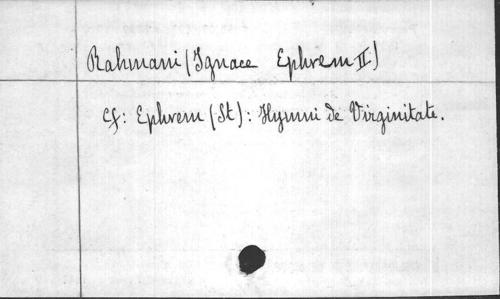 Rahmani (Ignace Ephrem II)
cf: Ephrem (St): Hymni de Virginitate.